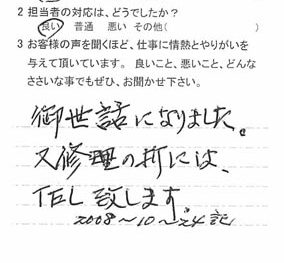 2 担当者の対応は、どうでしたか？
良い 普通 悪い その他(
3 お客様の声を聞くほど、仕事に情熱とやりがいを
与えて頂いています。 良いこと、悪いこと、どんな
ささいな事でもぜひ、お聞かせ下さい。
御世話になりました。
又修理の折には、
TEL致します。
2008〜10〜24 記